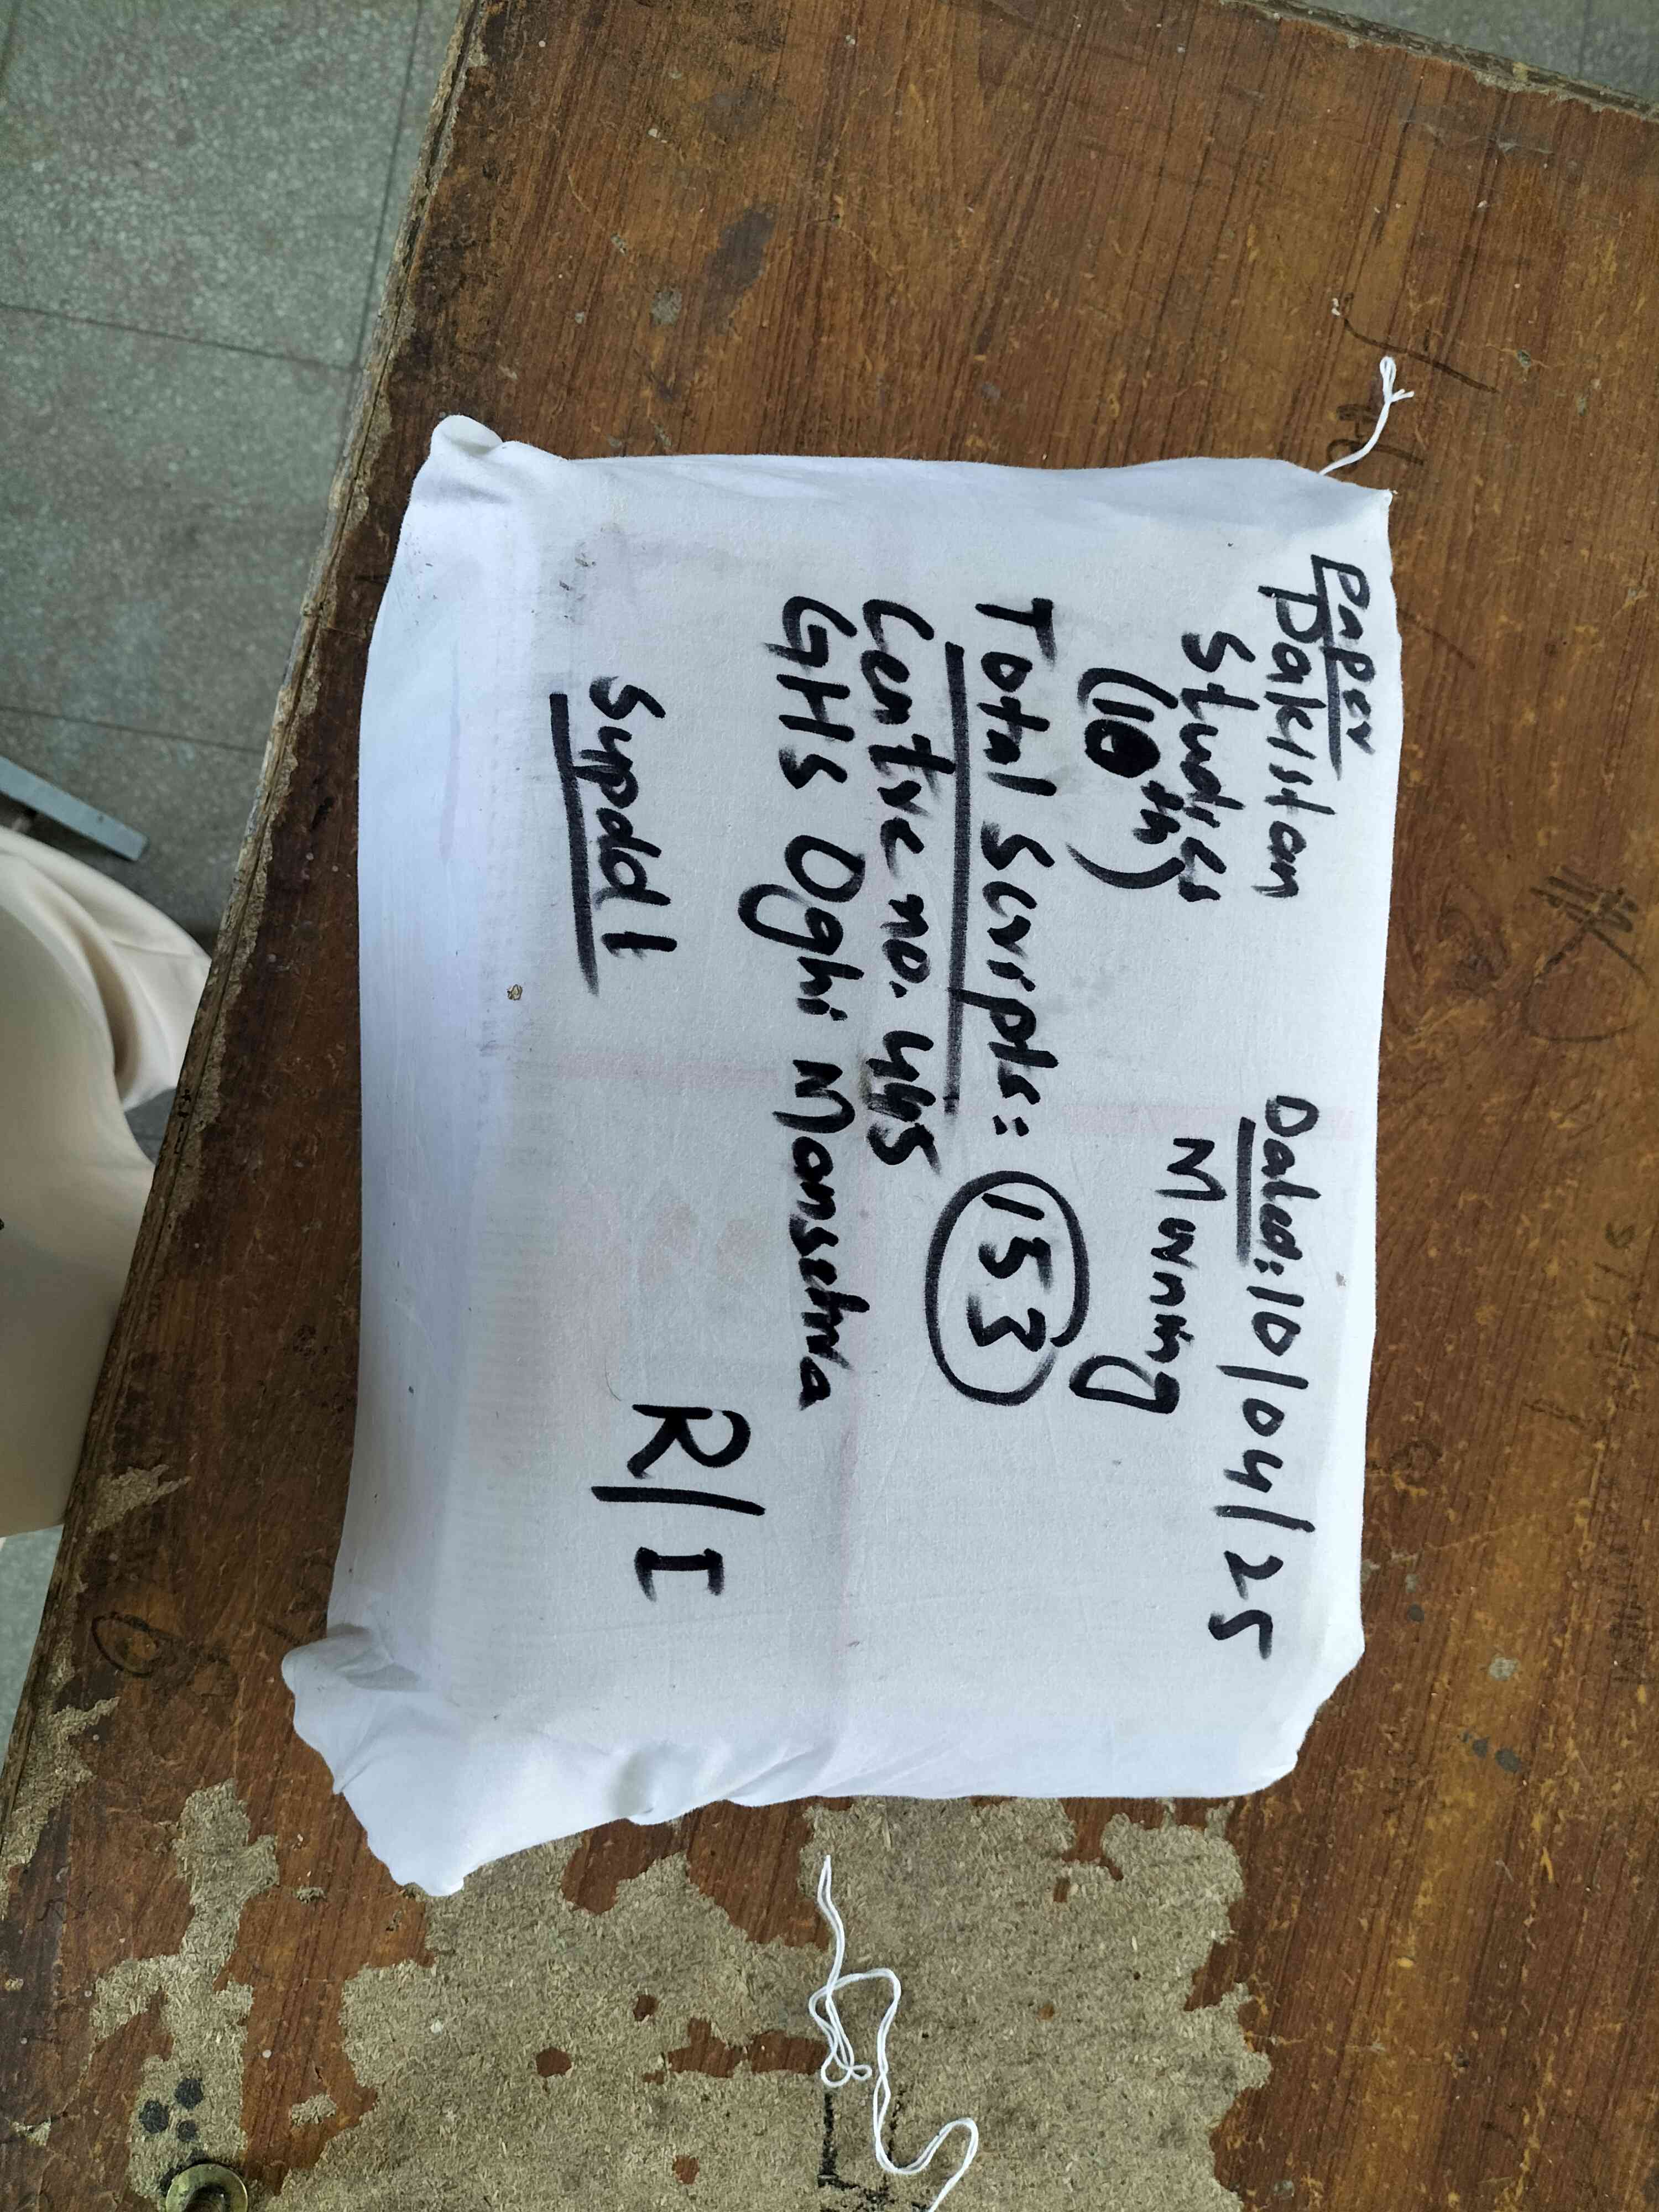 Paper
Pakistan
Studies
(10th)
Dated: 10/04/25
Morning
Total Scripts: 153
Centre no. 445
GHS Oghi Mansehra
Sypdd I
R/I